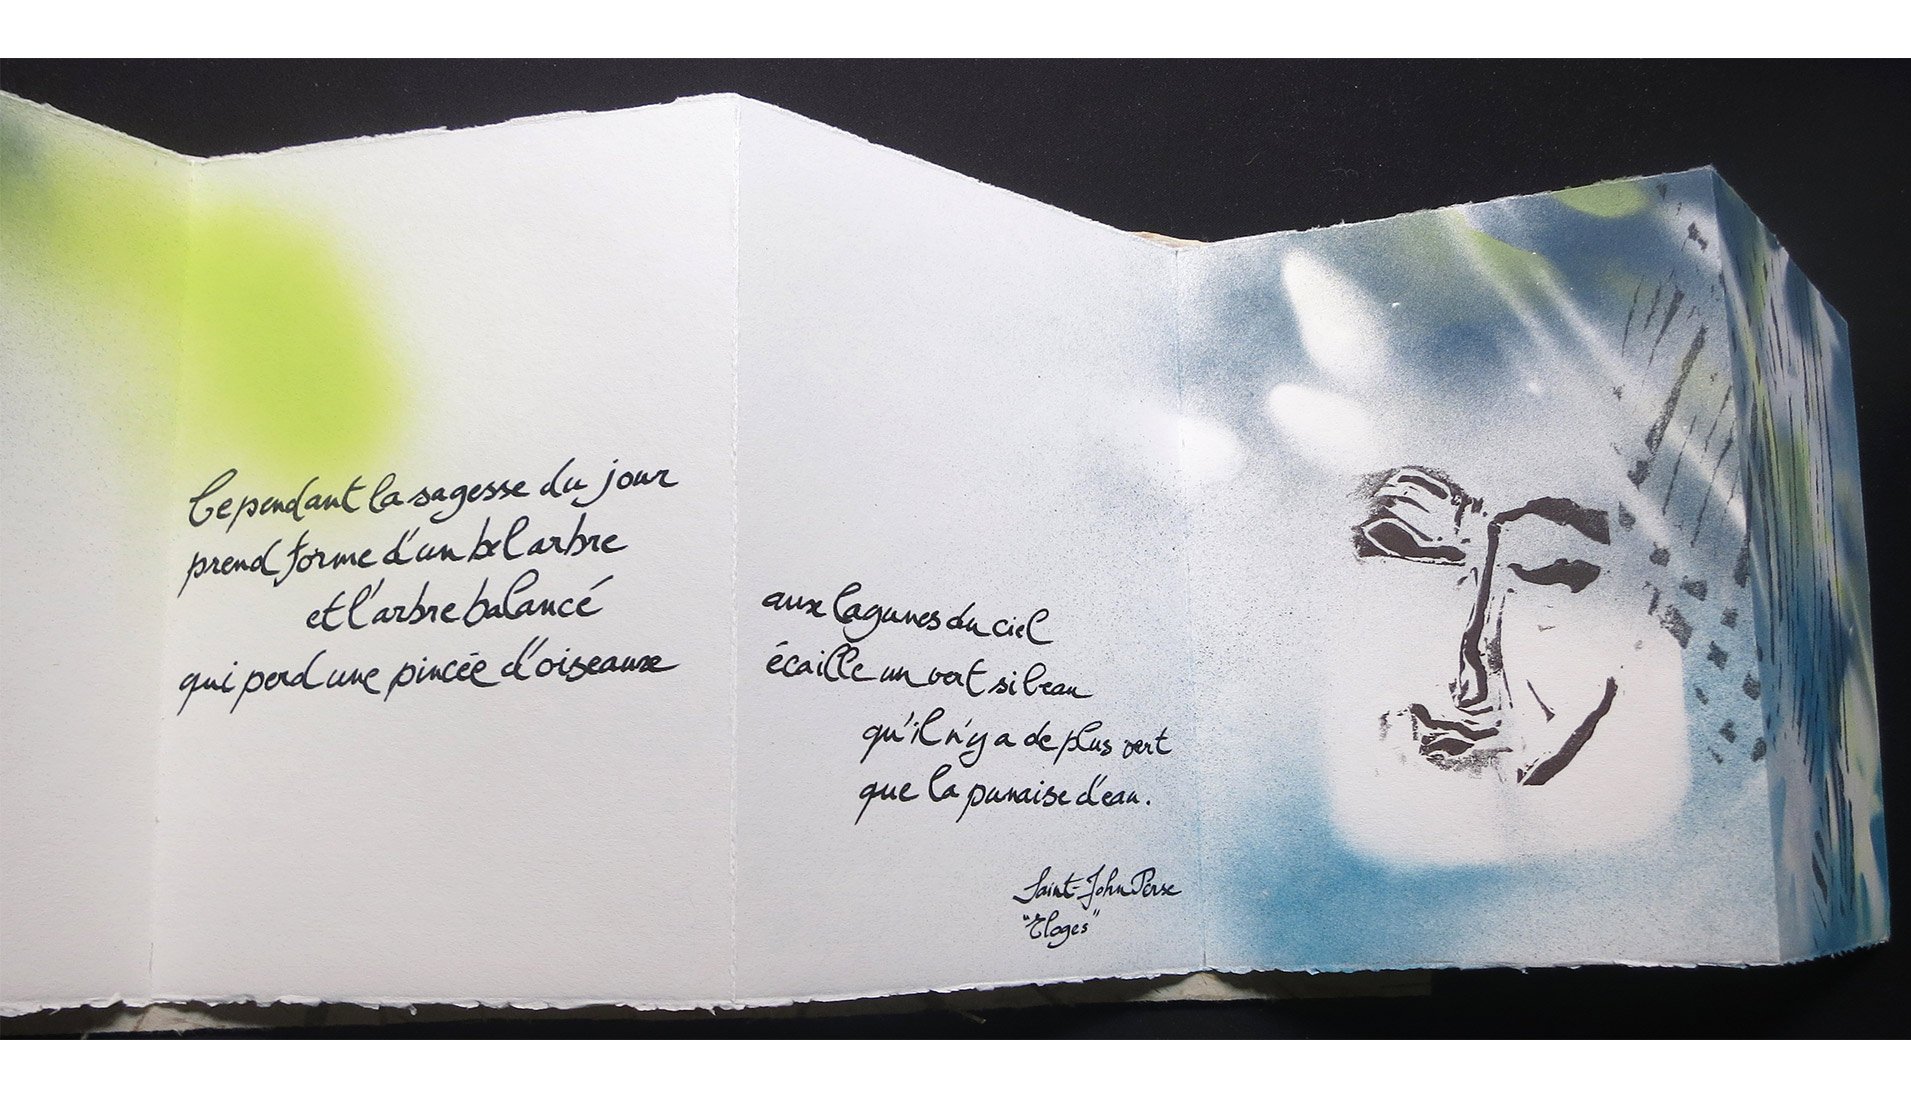 Cependant la sagesse du jour
prend forme d'un bel arbre
et l'arbre balancé
qui perd une pincée d'oiseaux
aux lagunes du ciel
écaille un vert si beau
qu'il n'y a de plus vert
que la punaise d'eau.
Saint-John Perse
"Eloges"